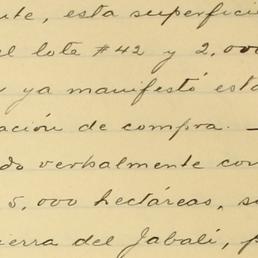 nte, esta superficie
el lote #42 y 2,000
ya manifestó esta
ación de compra. —
do verbalmente con
5,000 hectáreas, s
ierra del Jabalí, p